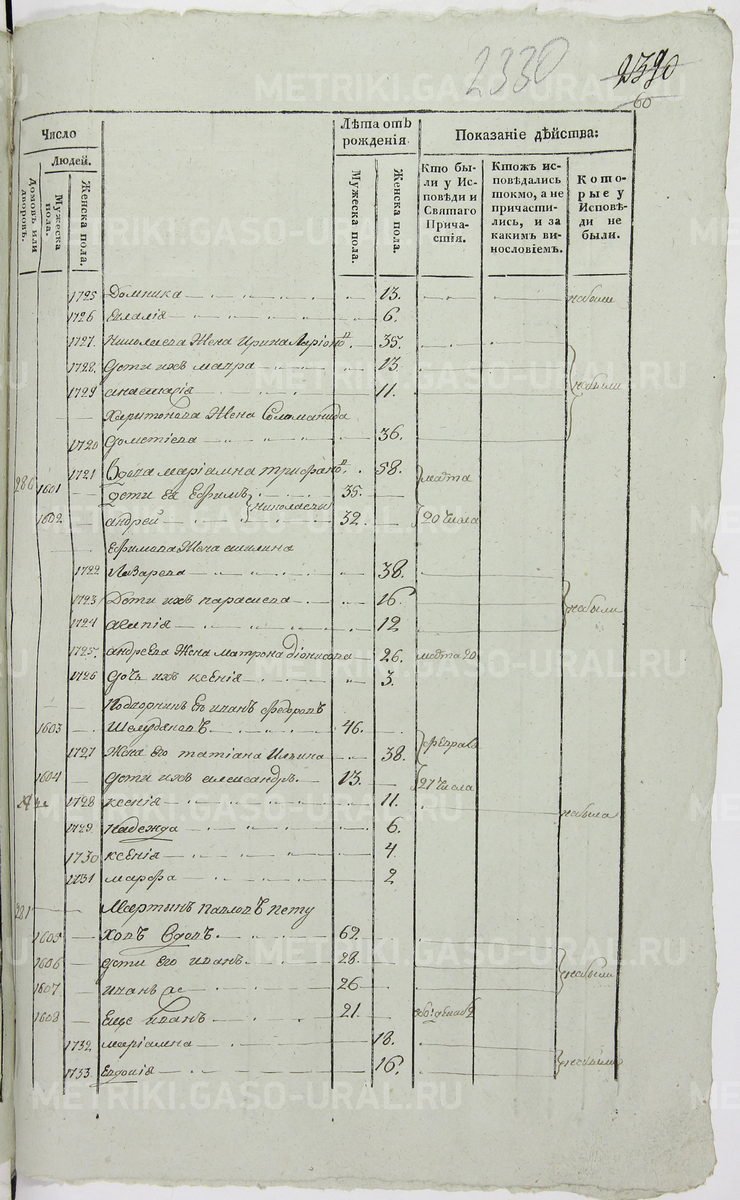 2330 2390
60
Число
Людей.
Домовъ или дворовъ.
Мужеска пола.
Женска пола.
Лѣта отъ рожденія
Мужеска пола.
Женска пола.
Показаніе дѣйства:
Кто бы-
ли у Ис-
повѣди и
Святаго
Прича-
стія.
Ктожъ ис-
повѣдались
токмо, а не
причасти-
лись, и за
какимъ ви-
нословіемъ.
Кото-
рые у
Исповѣ-
ди не
были.
1725 Домника 13. небыли
1726 Евлалія 6.
1727. Николаева Жена Ирина Ларіоно 35.
1728. дети ихъ мавра 13.
1729 анастасія 11. небыли
Харитонова Жена Соломанида
1720 дометіева 36.
286 1721 Вдова маріамна трифоно 58. марта
1601 дети ея Ефимъ 35.
Николаевы
1602 андрей 32. 20 числа
Ефимова Жена акилина
1722 Лазарева 38.
1723 Дети ихъ параскева 16. небыли
1724 агапія 12
1725. андреева Жена матрона діонисова 26. марта 20
1726 дочь ихъ ксенія 3.
Подворникъ Его иванъ федоровъ
1603 46.
1727 Жена Его татіана Ильина 38. феврал
1604 дети ихъ александръ 13. 21 числа
1728 ксенія 11. небыла
1729. надежда 6.
1730 ксенія 4
1731 марфа 2
Мартинъ павловъ пету
1605 ховъ Вдовъ 62.
1606 дети Его иванъ 28. небыли
1607 иванъ же 26
1608 Еще Иванъ 21.
1732 маріамна 18.
1733. Евдокія 16. небыли
METRIKI.GASO-URAL.RU